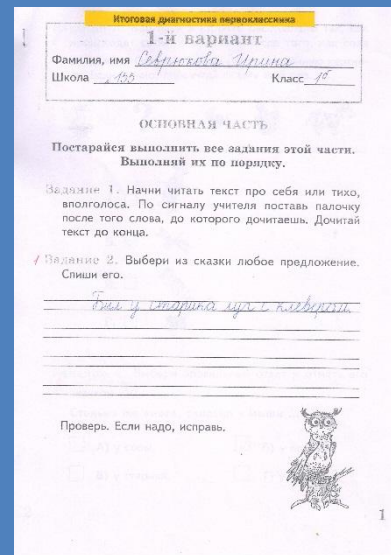 Итоговая диагностика первоклассника
1-й вариант
Фамилия, имя Севрюкова Ирина
Школа 133 Класс 1б
ОСНОВНАЯ ЧАСТЬ
Постарайся выполнить все задания этой части.
Выполняй их по порядку.
Задание 1. Начни читать текст про себя или тихо,
вполголоса. По сигналу учителя поставь палочку
после того слова, до которого дочитаешь. Дочитай
текст до конца.
Задание 2. Выбери из сказки любое предложение.
Спиши его.
Был у старика луг с клевером.
Проверь. Если надо, исправь.
1